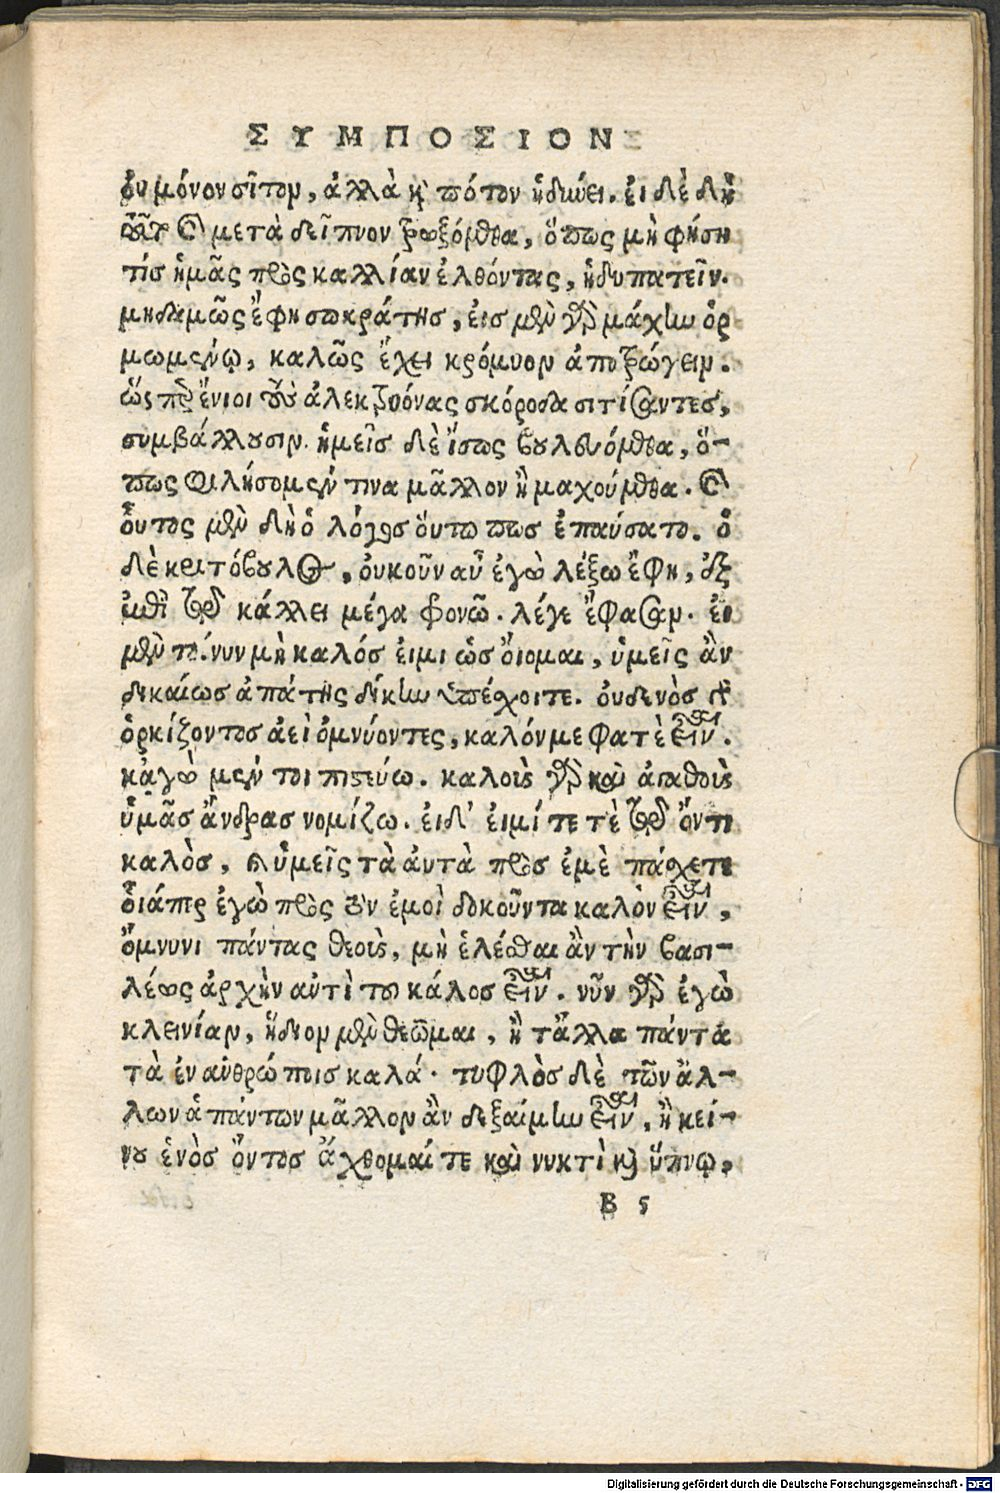 ΣΥΜΠΟΣΙΟΝ
οὐ μόνον σῖτον, ἀλλὰ καὶ πότον ἡδύνει. εἰ δὲ δὴ
τοῦτο καὶ μετὰ δεῖπνον τρωξόμεθα, ὅπως μὴ φήση
τίς ἡμᾶς πρὸς καλλίαν ἐλθόντας, ἡδυπατεῖν.
μηδαμῶς ἔφη σωκράτης, εἰς μὲν γὰρ μάχην ὁρ
μωμένῳ, καλῶς ἔχει κρόμυον ἀποτρώγειν.
ὥσπερ ἔνιοι τοὺς ἀλεκτρυόνας σκόροδα σιτίσαντες,
συμβάλλουσιν. ἡμεῖς δὲ ἴσως βουλευόμεθα, ὅ-
πως φιλήσομέν τινα μᾶλλον ἢ μαχούμεθα. καὶ
οὗτος μὲν δὴ ὁ λόγος οὕτω πως ἐπαύσατο. ὁ
δὲ κριτόβουλος, οὐκοῦν αὖ ἐγὼ λέξω ἔφη, ἐξ
ὧν ἐπὶ τῷ κάλλει μέγα φρονῶ. λέγε ἔφασαν. εἰ
μὲν τοίνυν μὴ καλός εἰμι ὡς οἴομαι, ὑμεῖς ἂν
δικαίως ἀπάτης δίκην ὑπέχοιτε. οὐδενὸς γὰρ
ὁρκίζοντος ἀεὶ ὀμνύοντες, καλόν με φατὲ εἶναι.
κἀγὼ μέν τοι πιστεύω. καλοὺς γὰρ καὶ ἀγαθοὺς
ὑμᾶς ἄνδρας νομίζω. εἰ δ' εἰμί τε τῷ ὄντι
καλὸς, καὶ ὑμεῖς τὰ αὐτὰ πρὸς ἐμὲ πάσχετε
οἷάπερ ἐγὼ πρὸς τὸν ἐμοὶ δοκοῦντα καλὸν εἶναι,
ὄμνυνι πάντας θεοὺς, μὴ ἑλέσθαι ἂν τὴν βασι-
λέως ἀρχὴν αὐτὶ τοῦ κάλος εἶναι. νῦν γὰρ ἐγὼ
κλεινίαν, ἥδιον μὲν θεῶμαι, ἢ τἄλλα πάντα
τὰ ἐν ἀνθρώποις καλά. τυφλὸς δὲ τῶν ἄλ-
λων ἁπάντων μᾶλλον ἂν δεξαίμην εἶναι, ἢ κεί-
νου ἑνὸς ὄντος ἄχθομαί τε καὶ νυκτὶ καὶ ὕπνῳ,
B 5
Digitalisierung gefördert durch die Deutsche Forschungsgemeinschaft - DFG